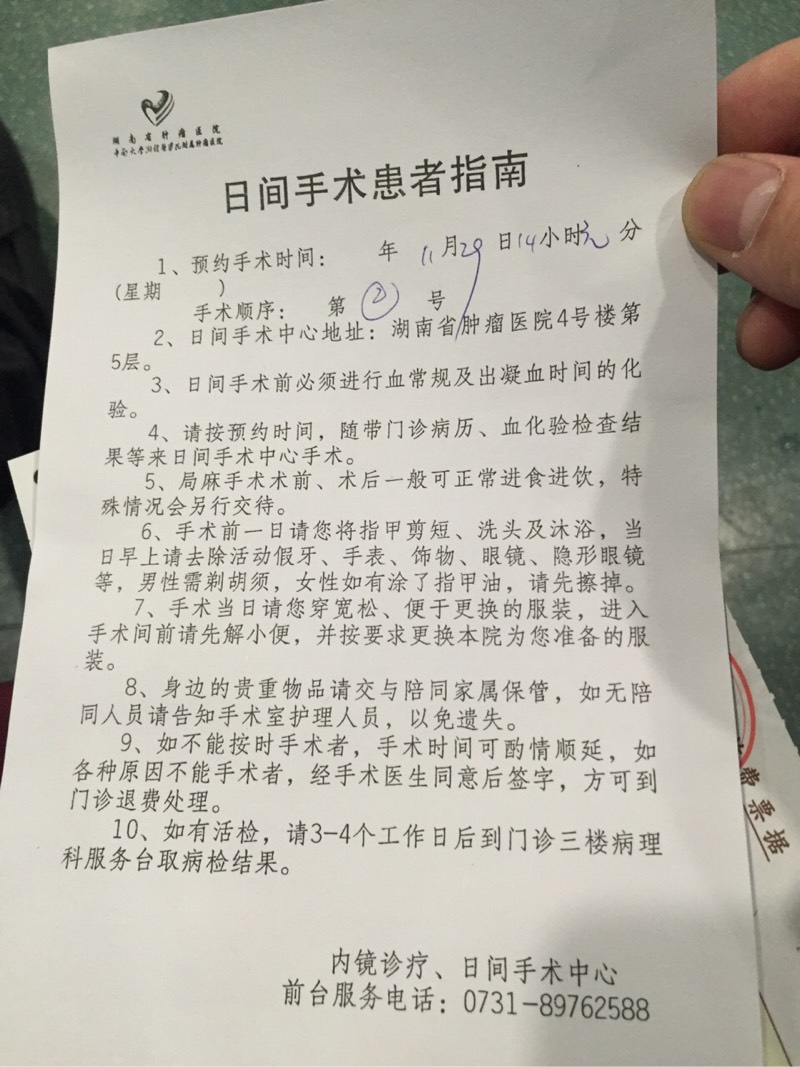 湖南省肿瘤医院
中南大学湘雅医学院附属肿瘤医院
日间手术患者指南
1、预约手术时间： 年 11月29日14小时30分
(星期 )
手术顺序： 第 ② 号
2、日间手术中心地址：湖南省肿瘤医院4号楼第
5层。
3、日间手术前必须进行血常规及出凝血时间的化
验。
4、请按预约时间，随带门诊病历、血化验检查结
果等来日间手术中心手术。
5、局麻手术术前、术后一般可正常进食进饮，特
殊情况会另行交待。
6、手术前一日请您将指甲剪短、洗头及沐浴，当
日早上请去除活动假牙、手表、饰物、眼镜、隐形眼镜
等，男性需剃胡须，女性如有涂了指甲油，请先擦掉。
7、手术当日请您穿宽松、便于更换的服装，进入
手术间前请先解小便，并按要求更换本院为您准备的服
装。
8、身边的贵重物品请交与陪同家属保管，如无陪
同人员请告知手术室护理人员，以免遗失。
9、如不能按时手术者，手术时间可酌情顺延，如
各种原因不能手术者，经手术医生同意后签字，方可到
门诊退费处理。
10、如有活检，请3-4个工作日后到门诊三楼病理
科服务台取病检结果。
内镜诊疗、日间手术中心
前台服务电话：0731-89762588
费票据